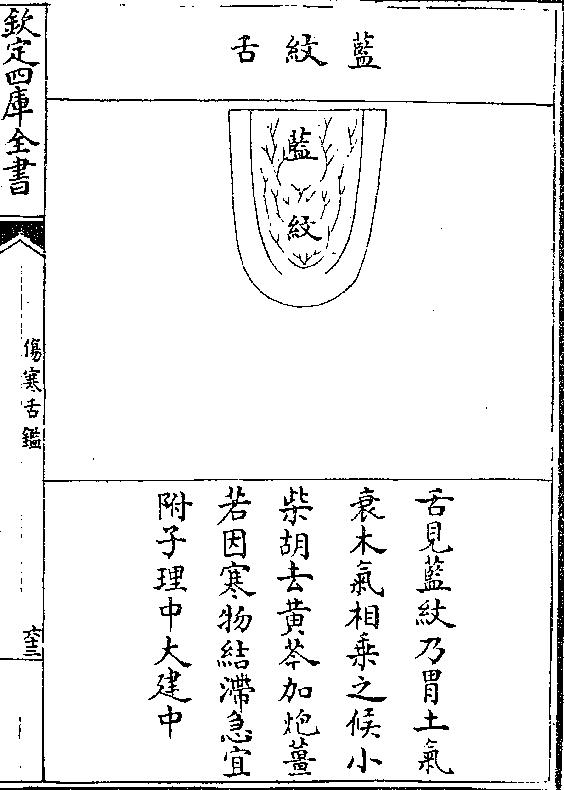 藍紋舌
藍紋
舌見藍紋乃胃土氣
衰木氣相乘之候小
柴胡去黄芩加炮薑
若因寒物結滯急宜
附子理中大建中
欽定四庫全書
傷寒舌鑑